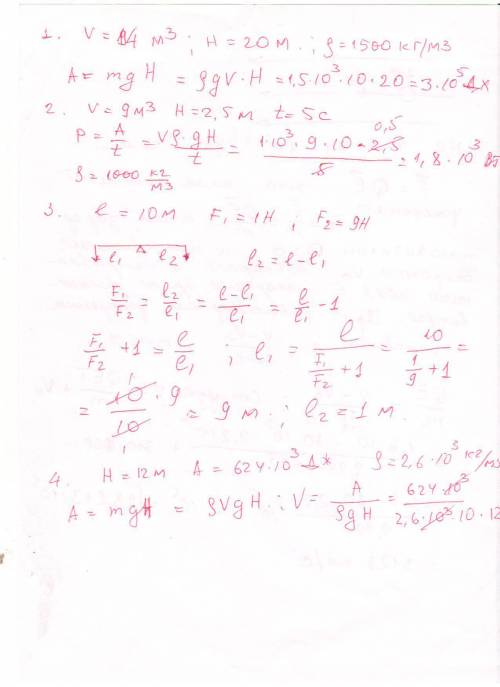 1. V = 14 м³ ; H = 20 м. ; ρ = 1500 кг/м3
A = mgH = ρgV·H = 1,5·10³·10·20 = 3·10⁵ Дж
2. V = 9м³ H = 2,5 м t = 5с
P = A/t = Vρ·gH/t = 1·10³·9·10·2,5/5 = 1,8·10³ Вт
0,5
ρ = 1000 кг/м3
3. l = 10м F₁ = 1Н ; F₂ = 9Н
l₁ l₂ l₂ = l - l₁
F₁/F₂ = l₂/l₁ = l-l₁/l₁ = l/l₁ - 1
F₁/F₂ + 1 = l/l₁ ; l₁ = l/(F₁/F₂ + 1) = 10/(1/9 + 1) =
= 10·9/10 = 9 м. ; l₂ = 1 м.
4. H = 12м A = 624·10³ Дж ρ = 2,6·10³ кг/м3
A = mgH = ρVgH ; V = A/ρgH = 624·10³/2,6·10³·10·12